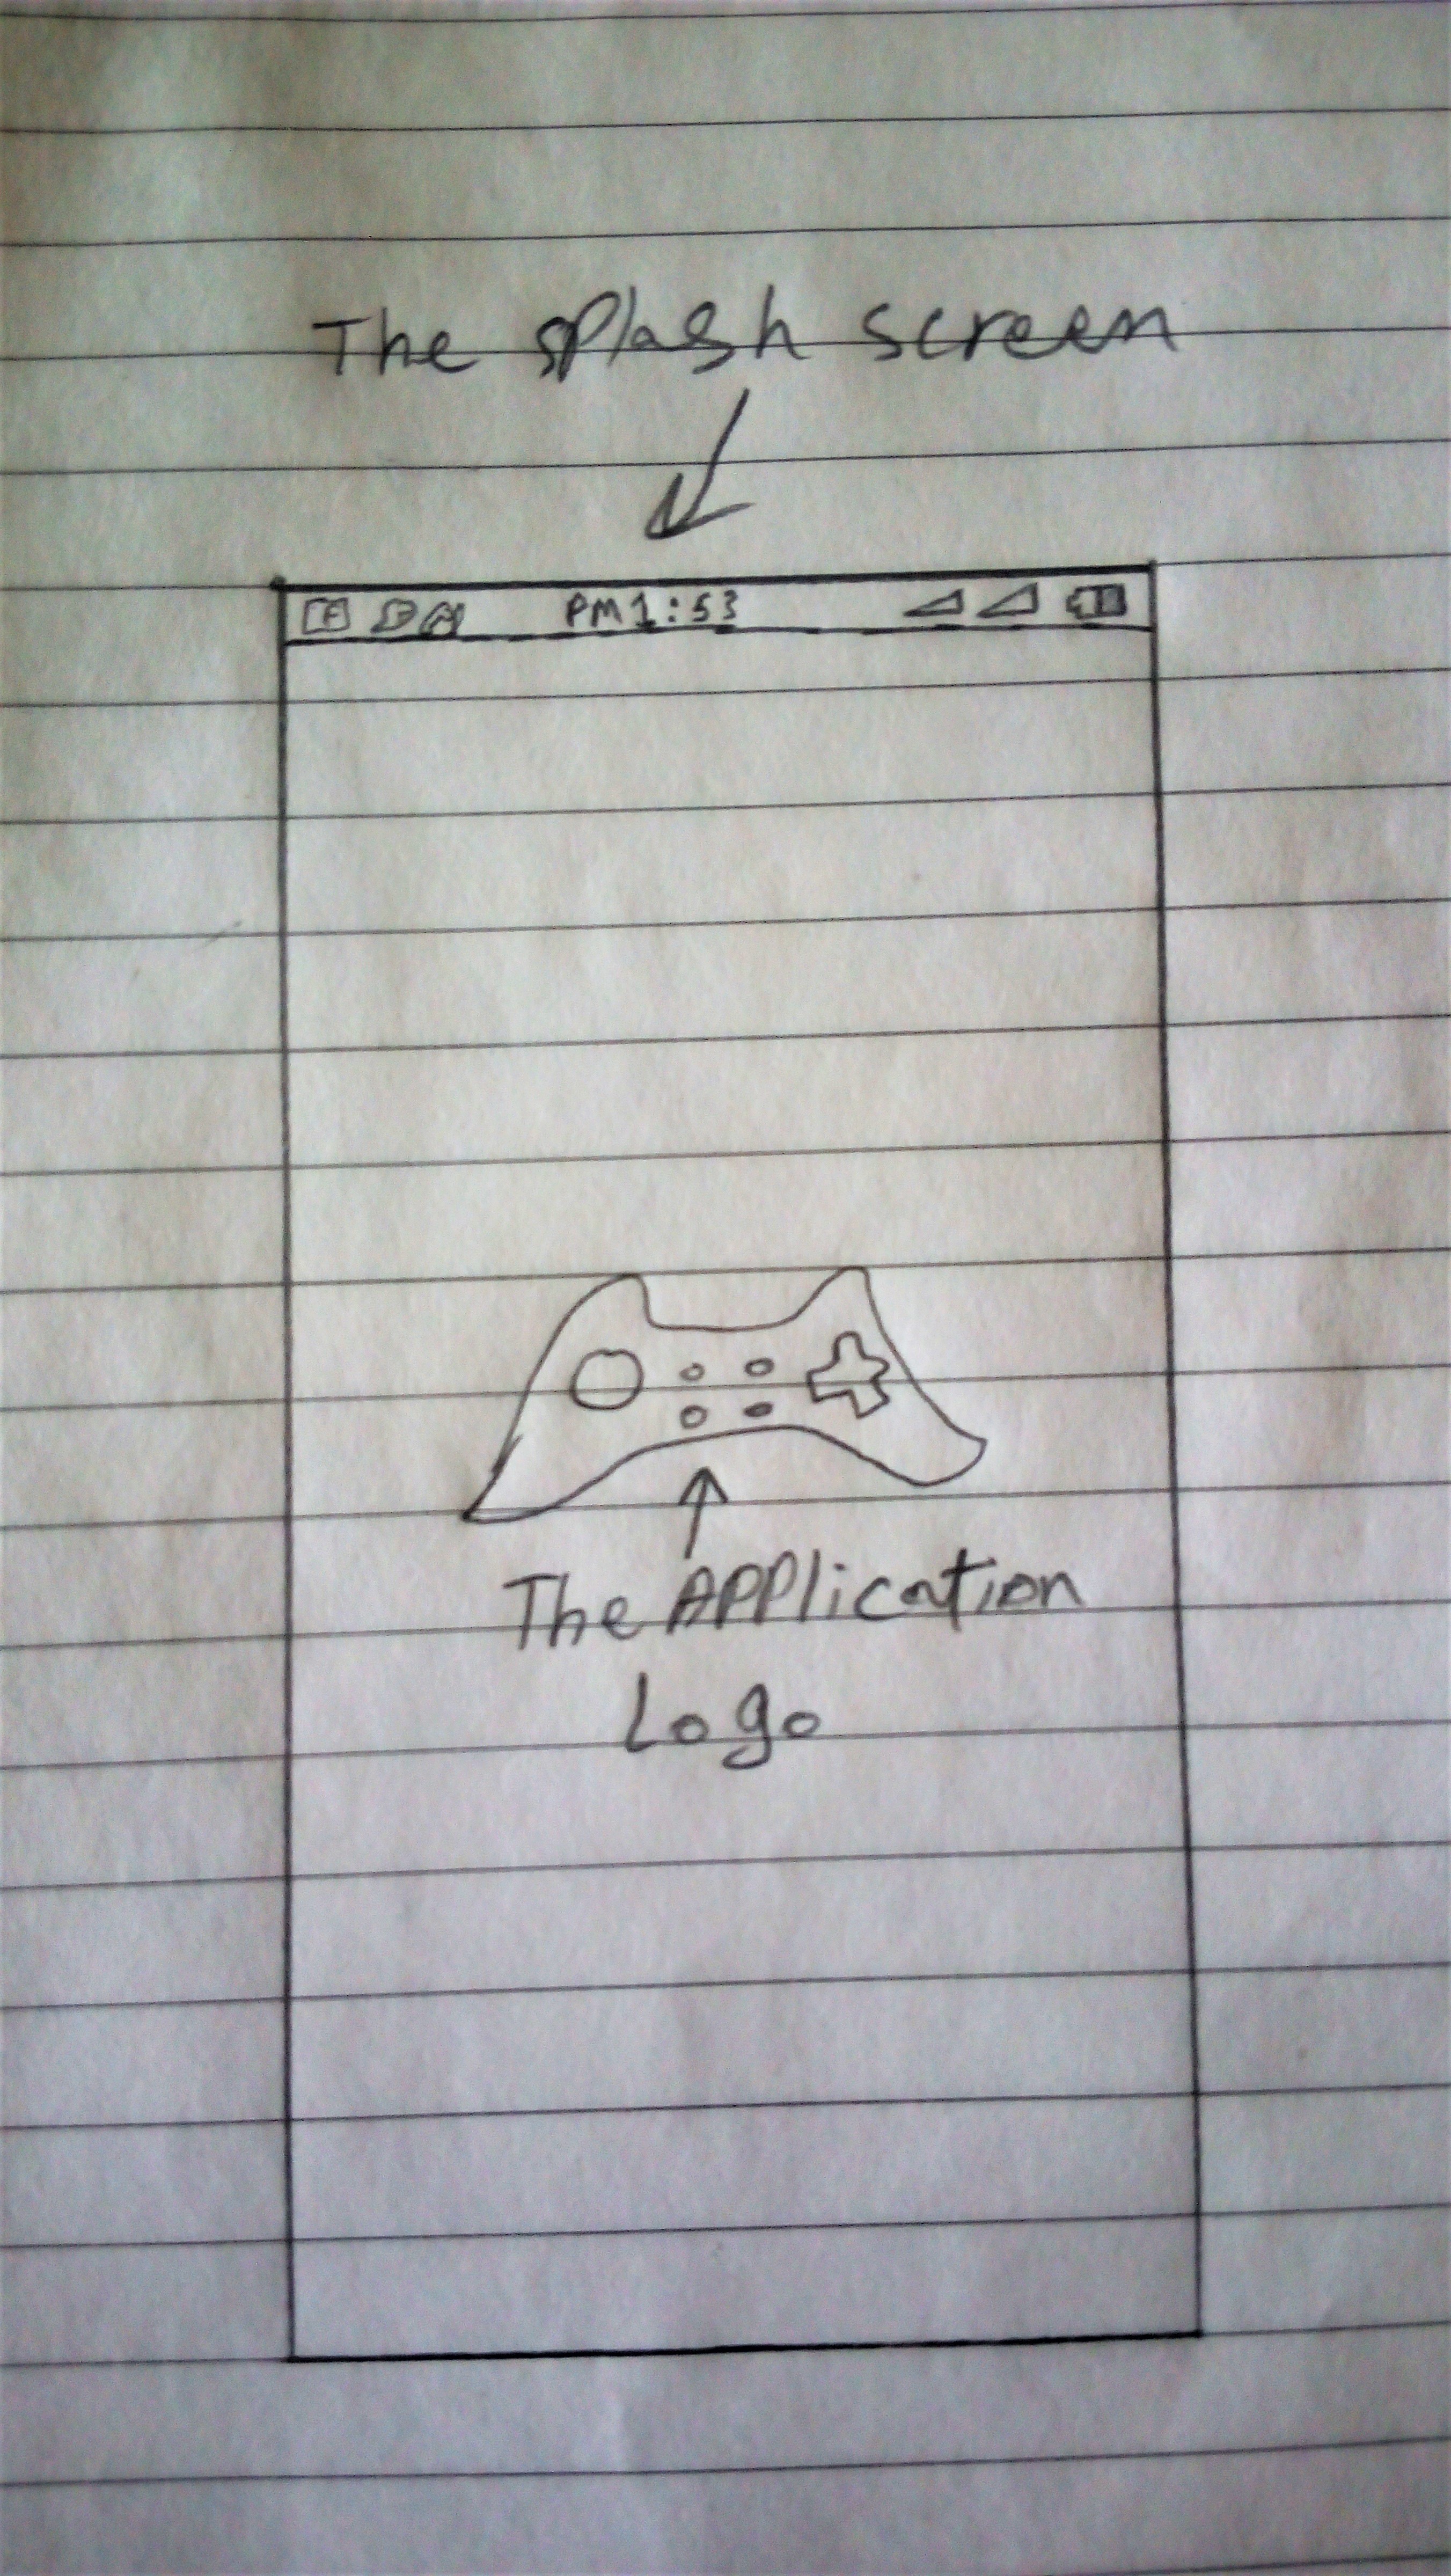 The splash screen
PM 1:53
The Application
Logo